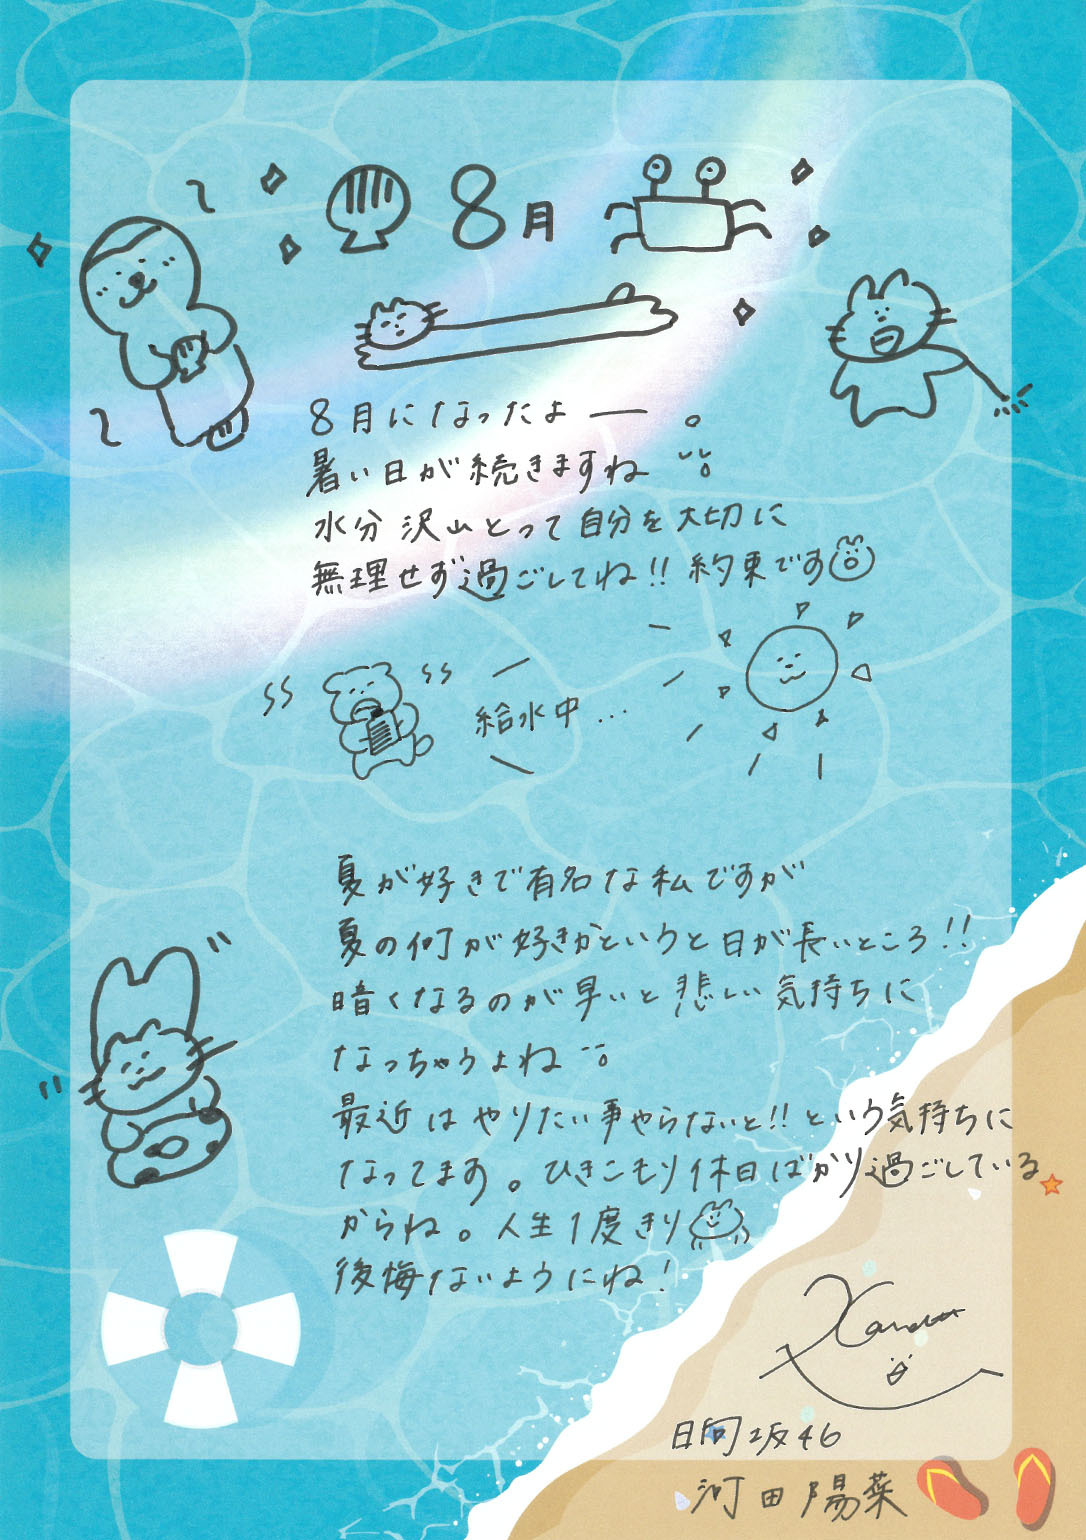 8月
8月になったよー。
暑い日が続きますね
水分沢山とって自分を大切に
無理せず過ごしてね!! 約束です
給水中...
夏が好きで有名な私ですが
夏の何が好きかというと日が長いところ!!
暗くなるのが早いと悲しい気持ちに
なっちゃうよね
最近はやりたい事やらないと!!という気持ちに
なってます。ひきこもり休日ばかり過ごしている
からね。人生1度きり
後悔ないようにね!
日向坂46
河田陽菜